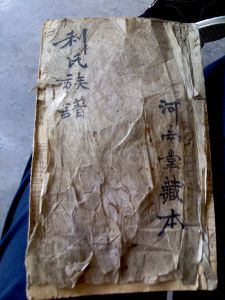 河南堂藏本
利氏族譜